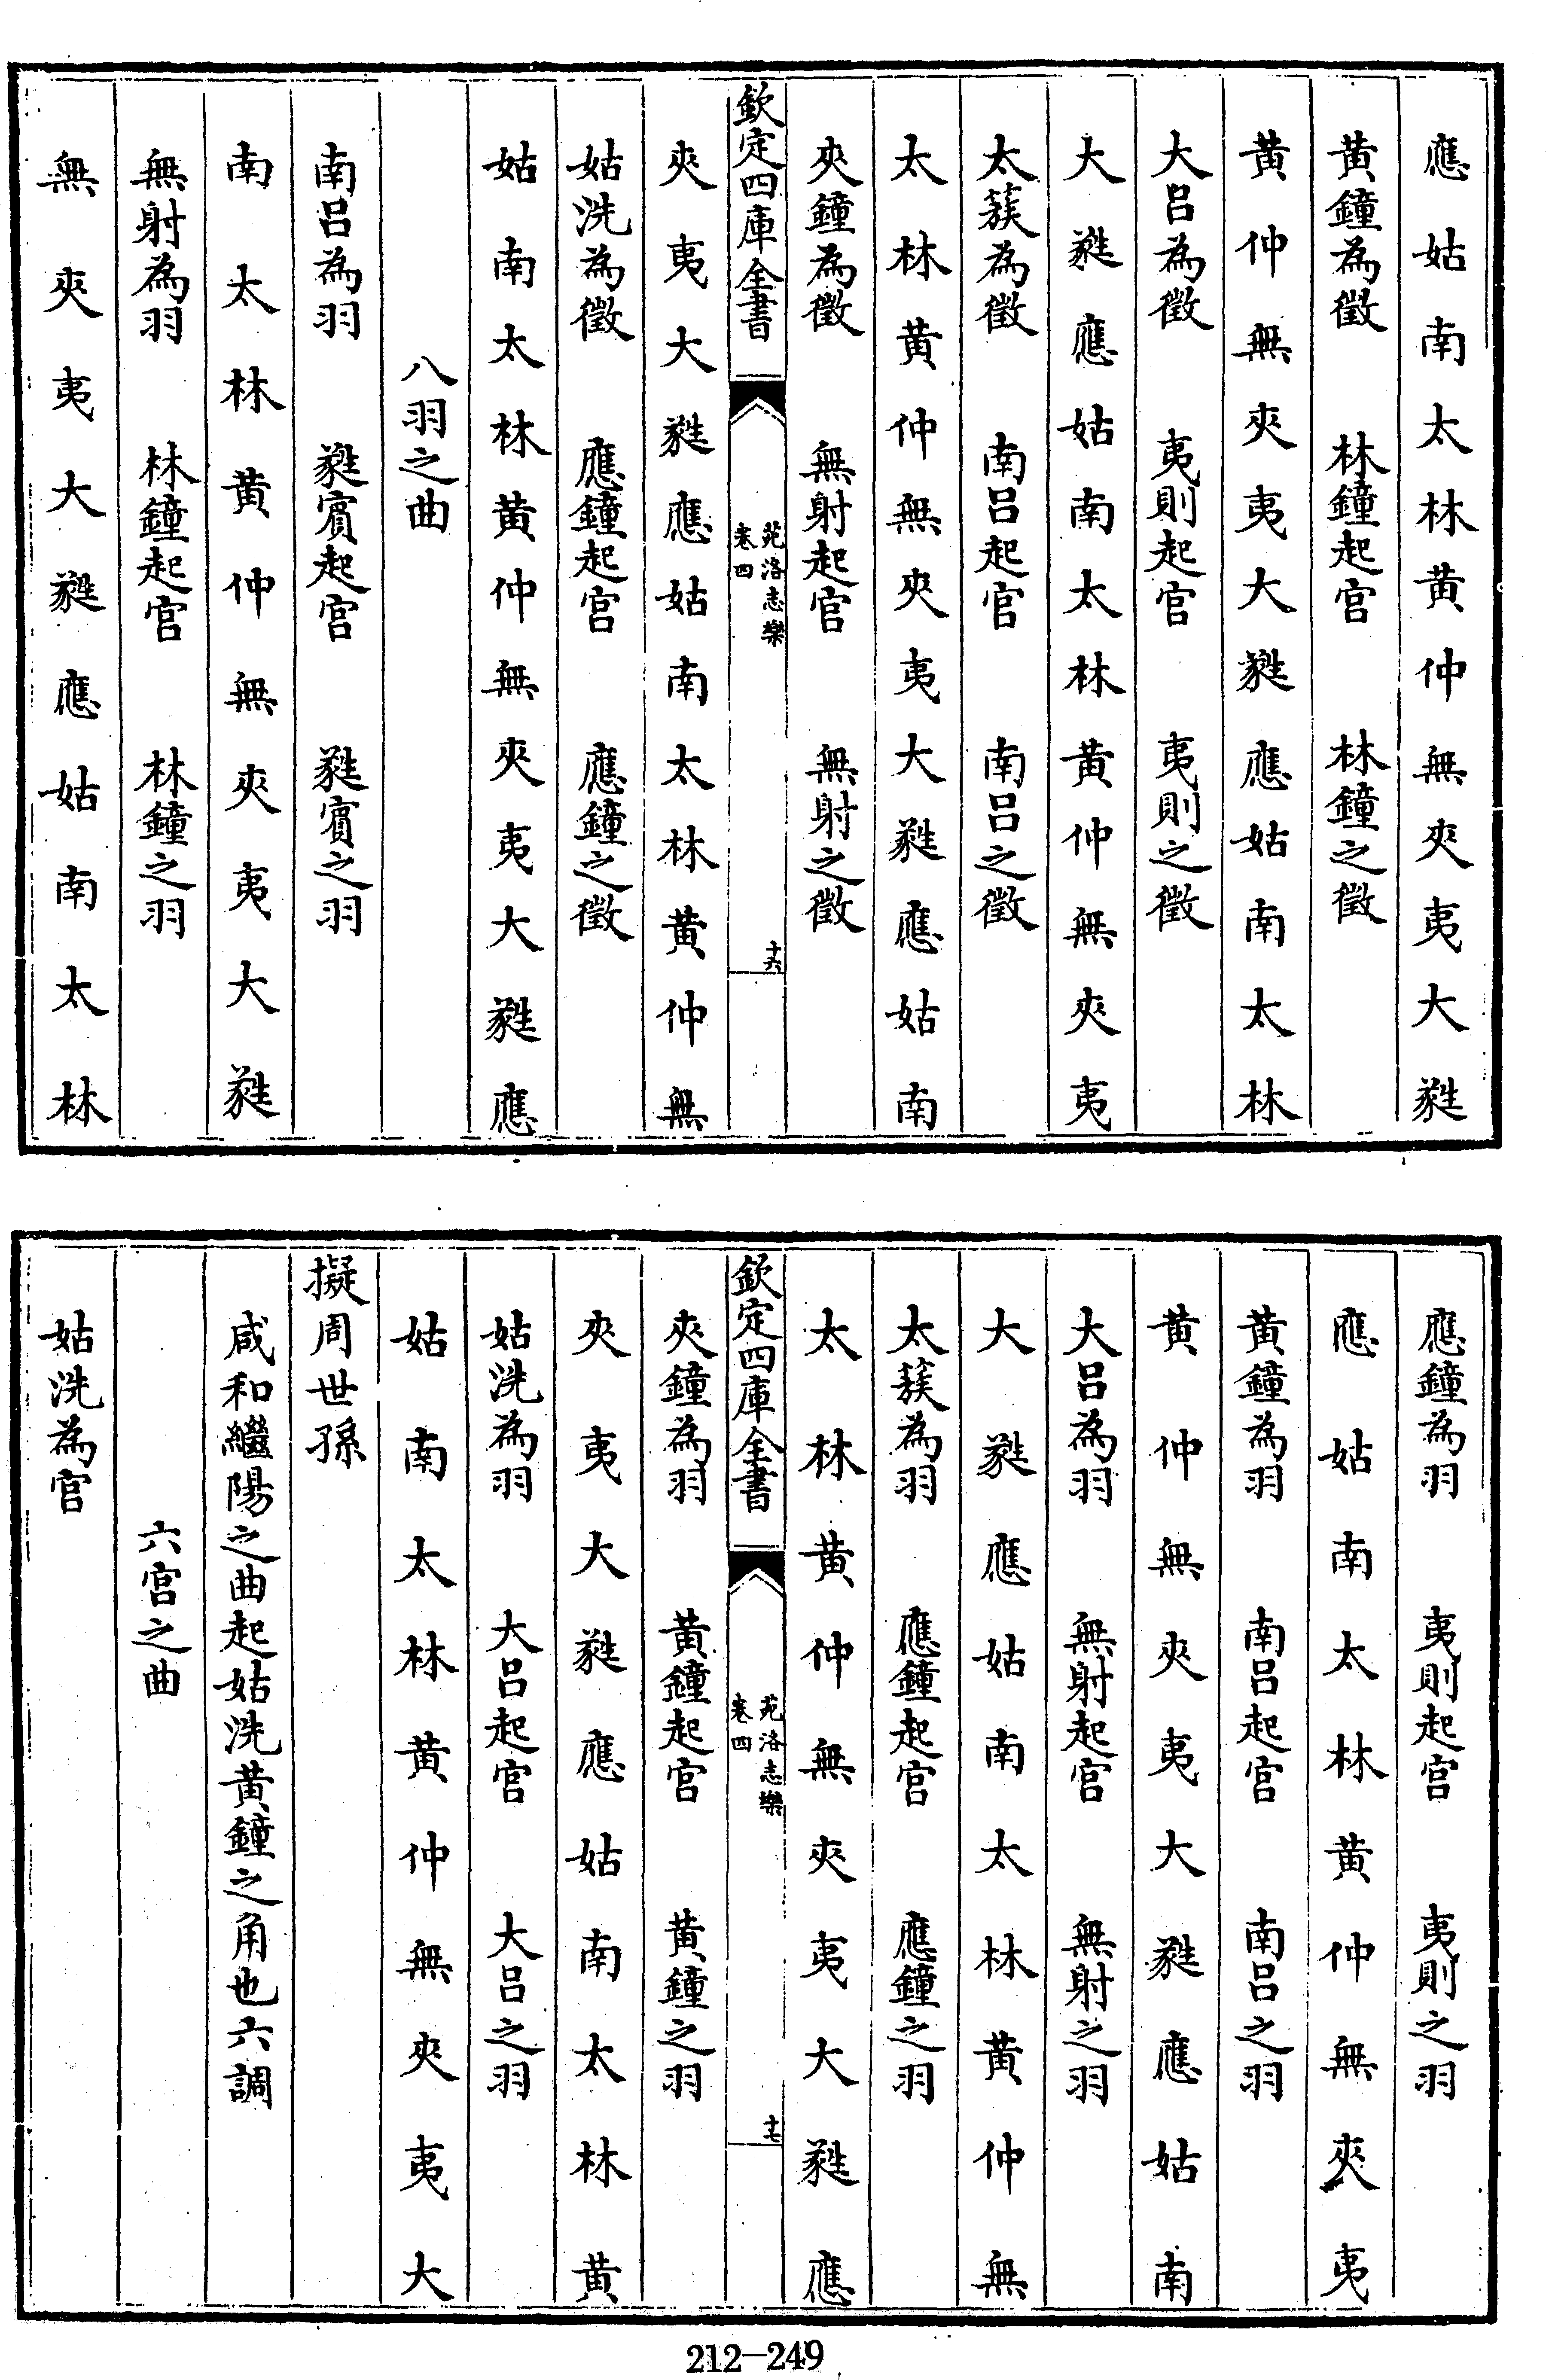 應姑南太林黃仲無夾夷大蕤
黃鐘為徵　林鐘起宮　林鐘之徵
黃仲無夾夷大蕤應姑南太林
大呂為徵　夷則起宮　夷則之徵
大蕤應姑南太林黃仲無夾夷
太蔟為徵　南呂起宮　南呂之徵
太林黃仲無夾夷大蕤應姑南
夾鐘為徵　無射起宮　無射之徵
欽定四庫全書　苑洛志樂
卷四　十六
夾夷大蕤應姑南太林黃仲無
姑洗為徵　應鐘起宮　應鐘之徵
姑南太林黃仲無夾夷大蕤應
八羽之曲
南呂為羽　蕤賓起宮　蕤賓之羽
南太林黃仲無夾夷大蕤
無射為羽　林鐘起宮　林鐘之羽
無夾夷大蕤應姑南太林
應鐘為羽　夷則起宮　夷則之羽
應姑南太林黃仲無夾夷
黃鐘為羽　南呂起宮　南呂之羽
黃仲無夾夷大蕤應姑南
大呂為羽　無射起宮　無射之羽
大蕤應姑南太林黃仲無
太蔟為羽　應鐘起宮　應鐘之羽
太林黃仲無夾夷大蕤應
欽定四庫全書　苑洛志樂
卷四　十七
夾鐘為羽　黃鐘起宮　黃鐘之羽
夾夷大蕤應姑南太林黃
姑洗為羽　大呂起宮　大呂之羽
姑南太林黃仲無夾夷大
擬周世孫
咸和繼陽之曲起姑洗黃鐘之角也六調
六宮之曲
姑洗為宮
212-249